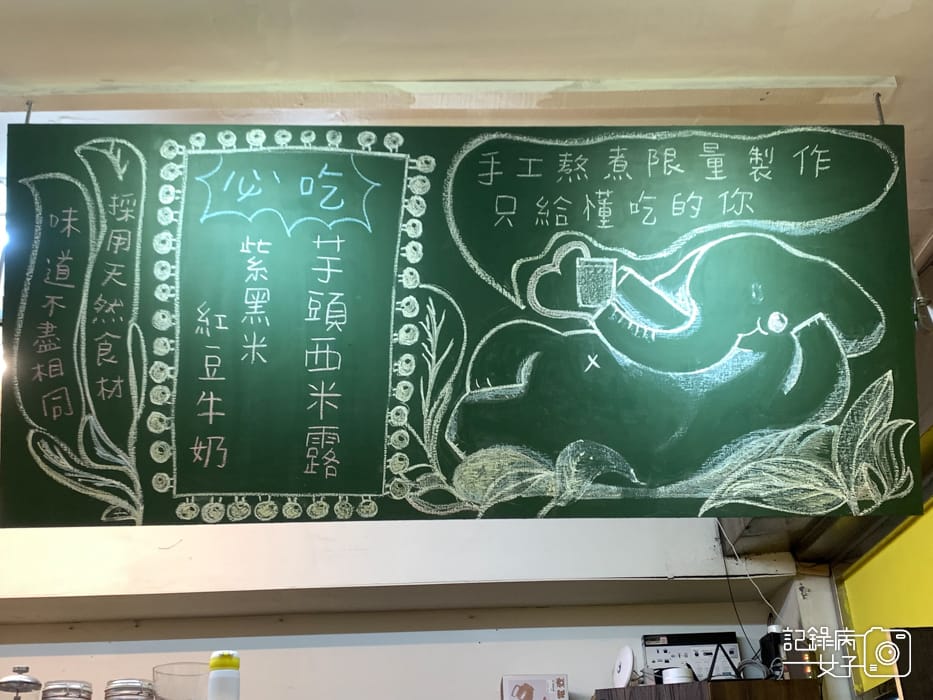 手工熬煮限量製作
只給懂吃的你
必吃
芋頭西米露
紫黑米
紅豆牛奶
採用天然食材
味道不盡相同
記錄病
女子